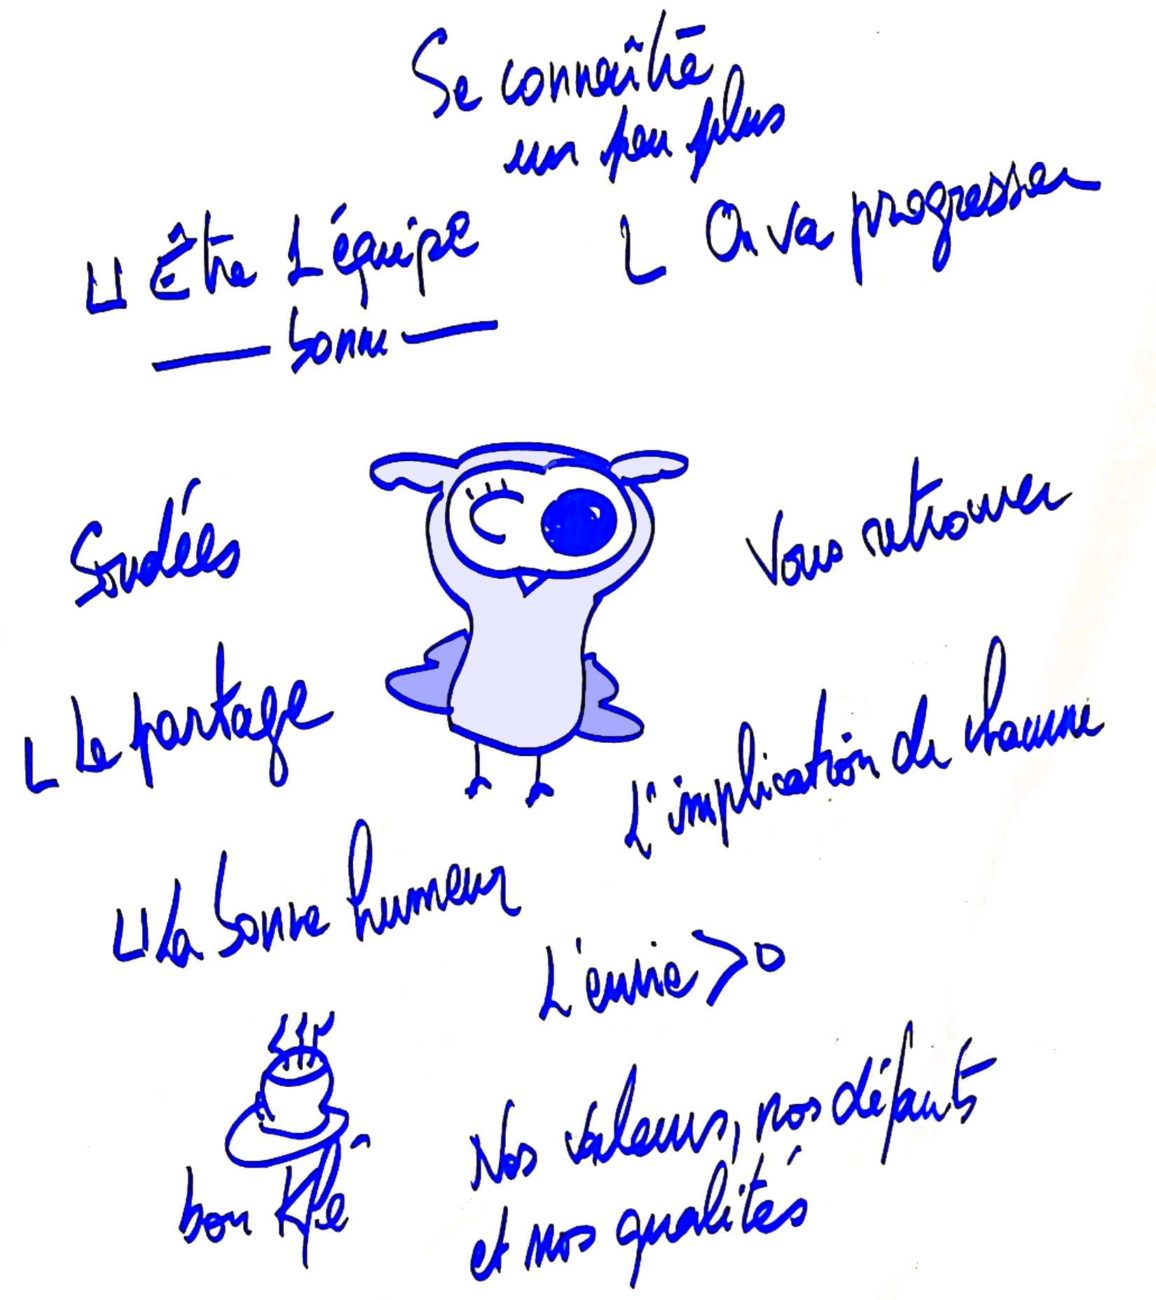 Se connaître
un peu plus
Être L'équipe
bonne
On va progresser
Soudées
Vous retrouver
Le partage
L'implication de chacune
La bonne humeur
L'envie > 0
bon Kfé
Nos valeurs, nos défauts
et nos qualités